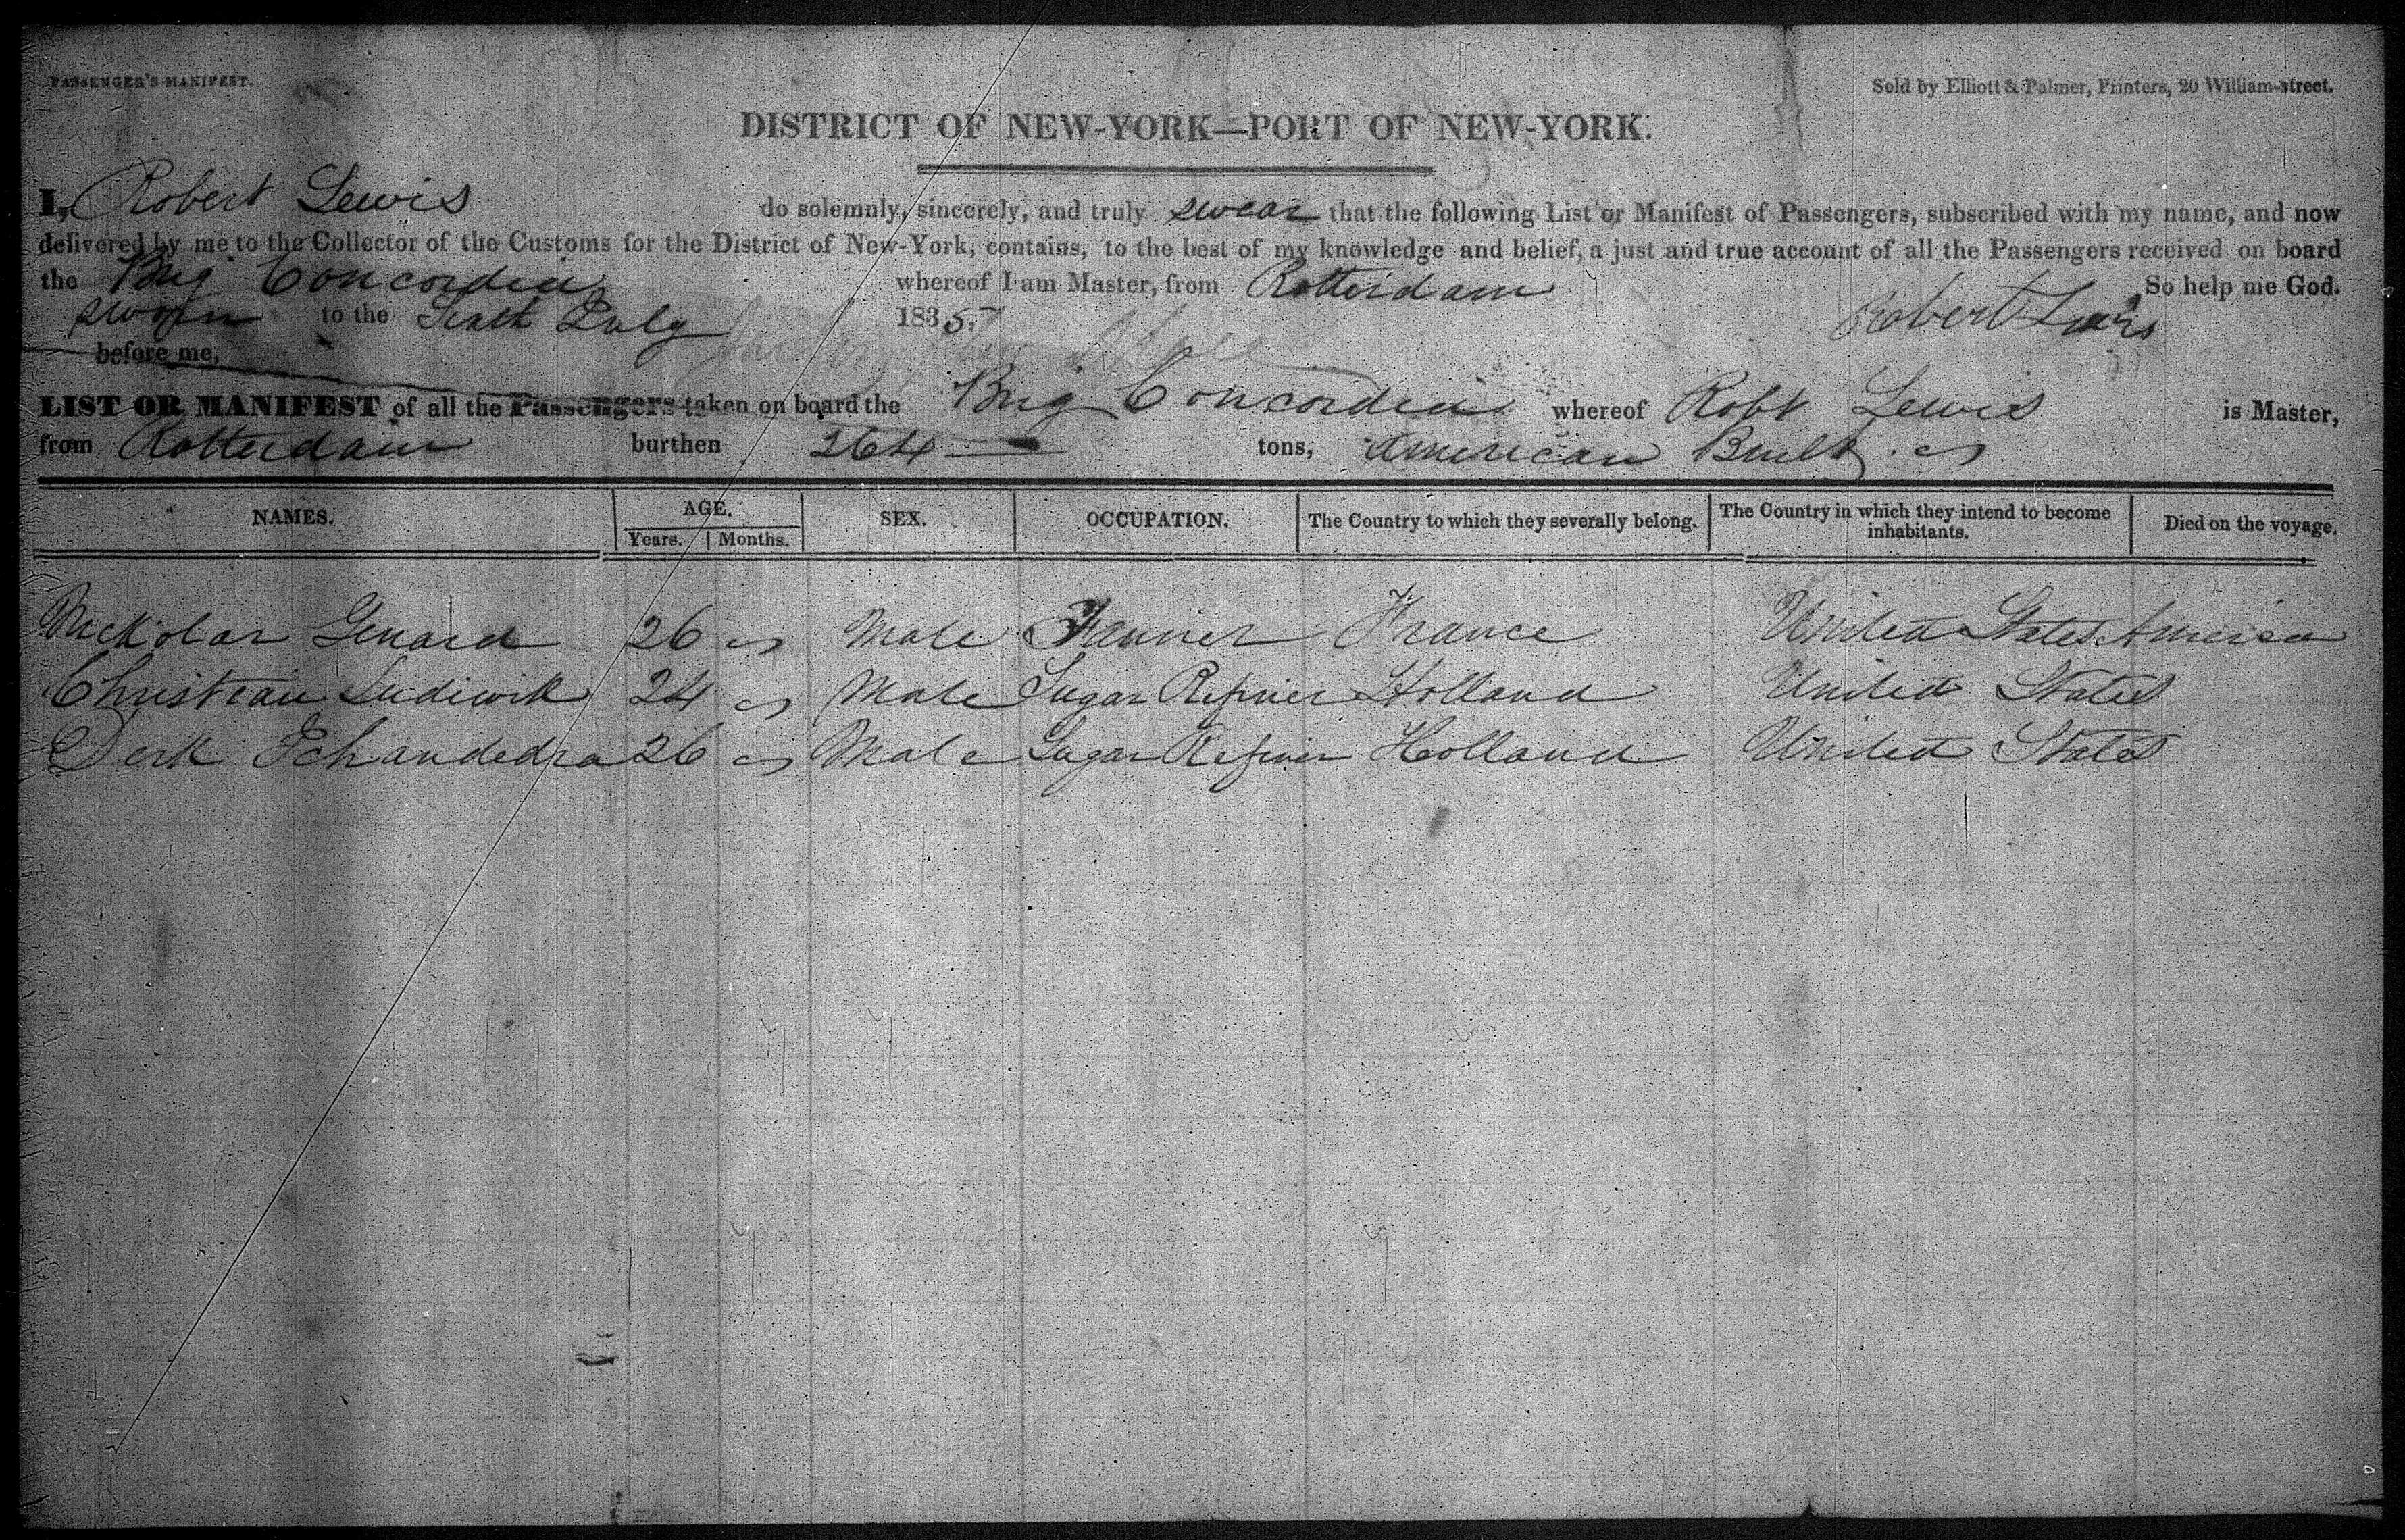 PASSENGER'S MANIFEST.
Sold by Elliott & Palmer, Printers, 20 William-street.
DISTRICT OF NEW-YORK—PORT OF NEW-YORK.
I, Robert Lewis do solemnly, sincerely, and truly swear that the following List or Manifest of Passengers, subscribed with my name, and now
delivered by me to the Collector of the Customs for the District of New-York, contains, to the best of my knowledge and belief, a just and true account of all the Passengers received on board
the Brig Concordia whereof I am Master, from Rotterdam So help me God.
sworn to the July 1835. Robert Lewis
before me,
LIST OR MANIFEST of all the Passengers taken on board the Brig Concordia whereof Robt Lewis is Master,
from Rotterdam burthen 264 tons, American Built
NAMES. AGE. SEX. OCCUPATION. The Country to which they severally belong. The Country in which they intend to become inhabitants. Died on the voyage.
Years. Months.
Nickolar Genard 26 Male France United States America
Christian Ludiwik 24 Male Sugar Refiner Holland United States
Derk 26 Male Sugar Refiner Holland United States